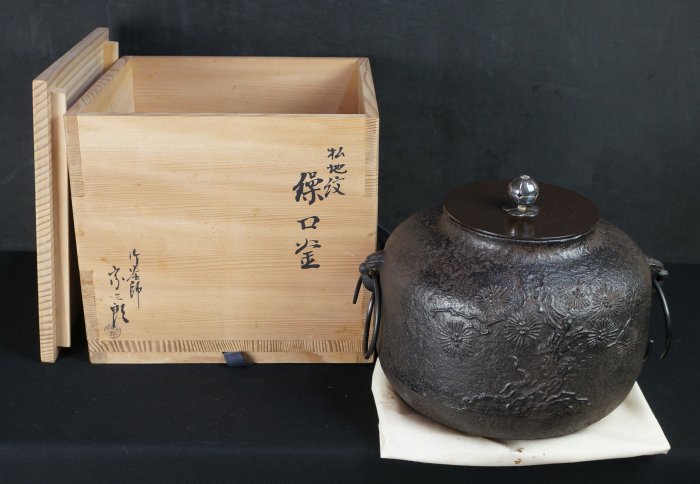 松地紋
繰口釜
御釜師
宗二郎